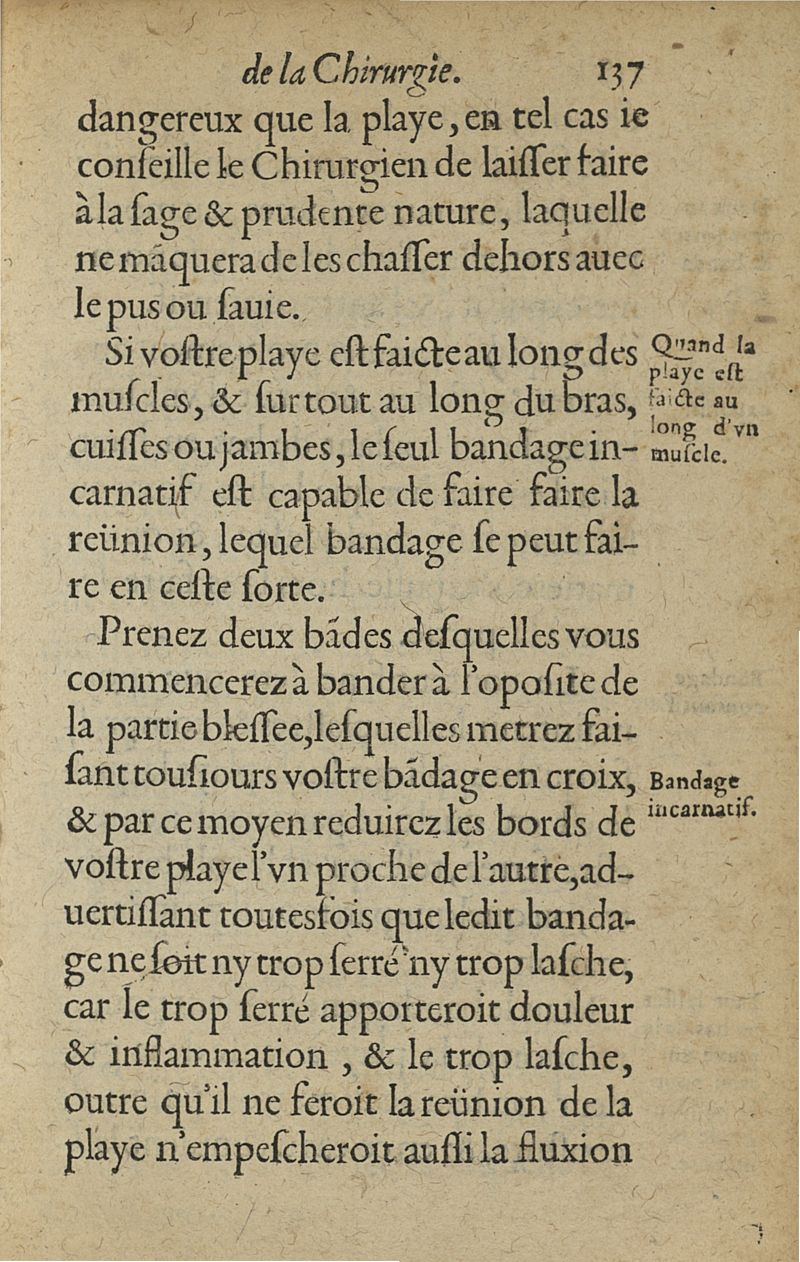 de la Chirurgie. 137
dangereux que la playe, en tel cas ie
conſeille le Chirurgien de laiſſer faire
à la ſage & prudente nature, laquelle
ne māquera de les chaſſer dehors auec
le pus ou ſauie.
Si voſtre playe eſt faicte au long des
muſcles, & ſur tout au long du bras,
cuiſſes ou jambes, le ſeul bandage in-
carnatif eſt capable de faire faire la
reünion, lequel bandage ſe peut fai-
re en ceſte ſorte.
Quand la
playe eſt
faicte au
long d'vn
muſcle.
Prenez deux bādes deſquelles vous
commencerez à bander à l'opoſite de
la partie bleſſee, leſquelles metrez fai-
ſant touſiours voſtre bādage en croix,
& par ce moyen reduirez les bords de
voſtre playe l'vn proche de l'autre, ad-
uertiſſant toutesfois que ledit banda-
ge ne ſoit ny trop ſerré ny trop laſche,
car le trop ſerré apporteroit douleur
& inflammation, & le trop laſche,
outre qu'il ne feroit la reünion de la
playe n'empeſcheroit auſſi la fluxion
Bandage
incarnatif.